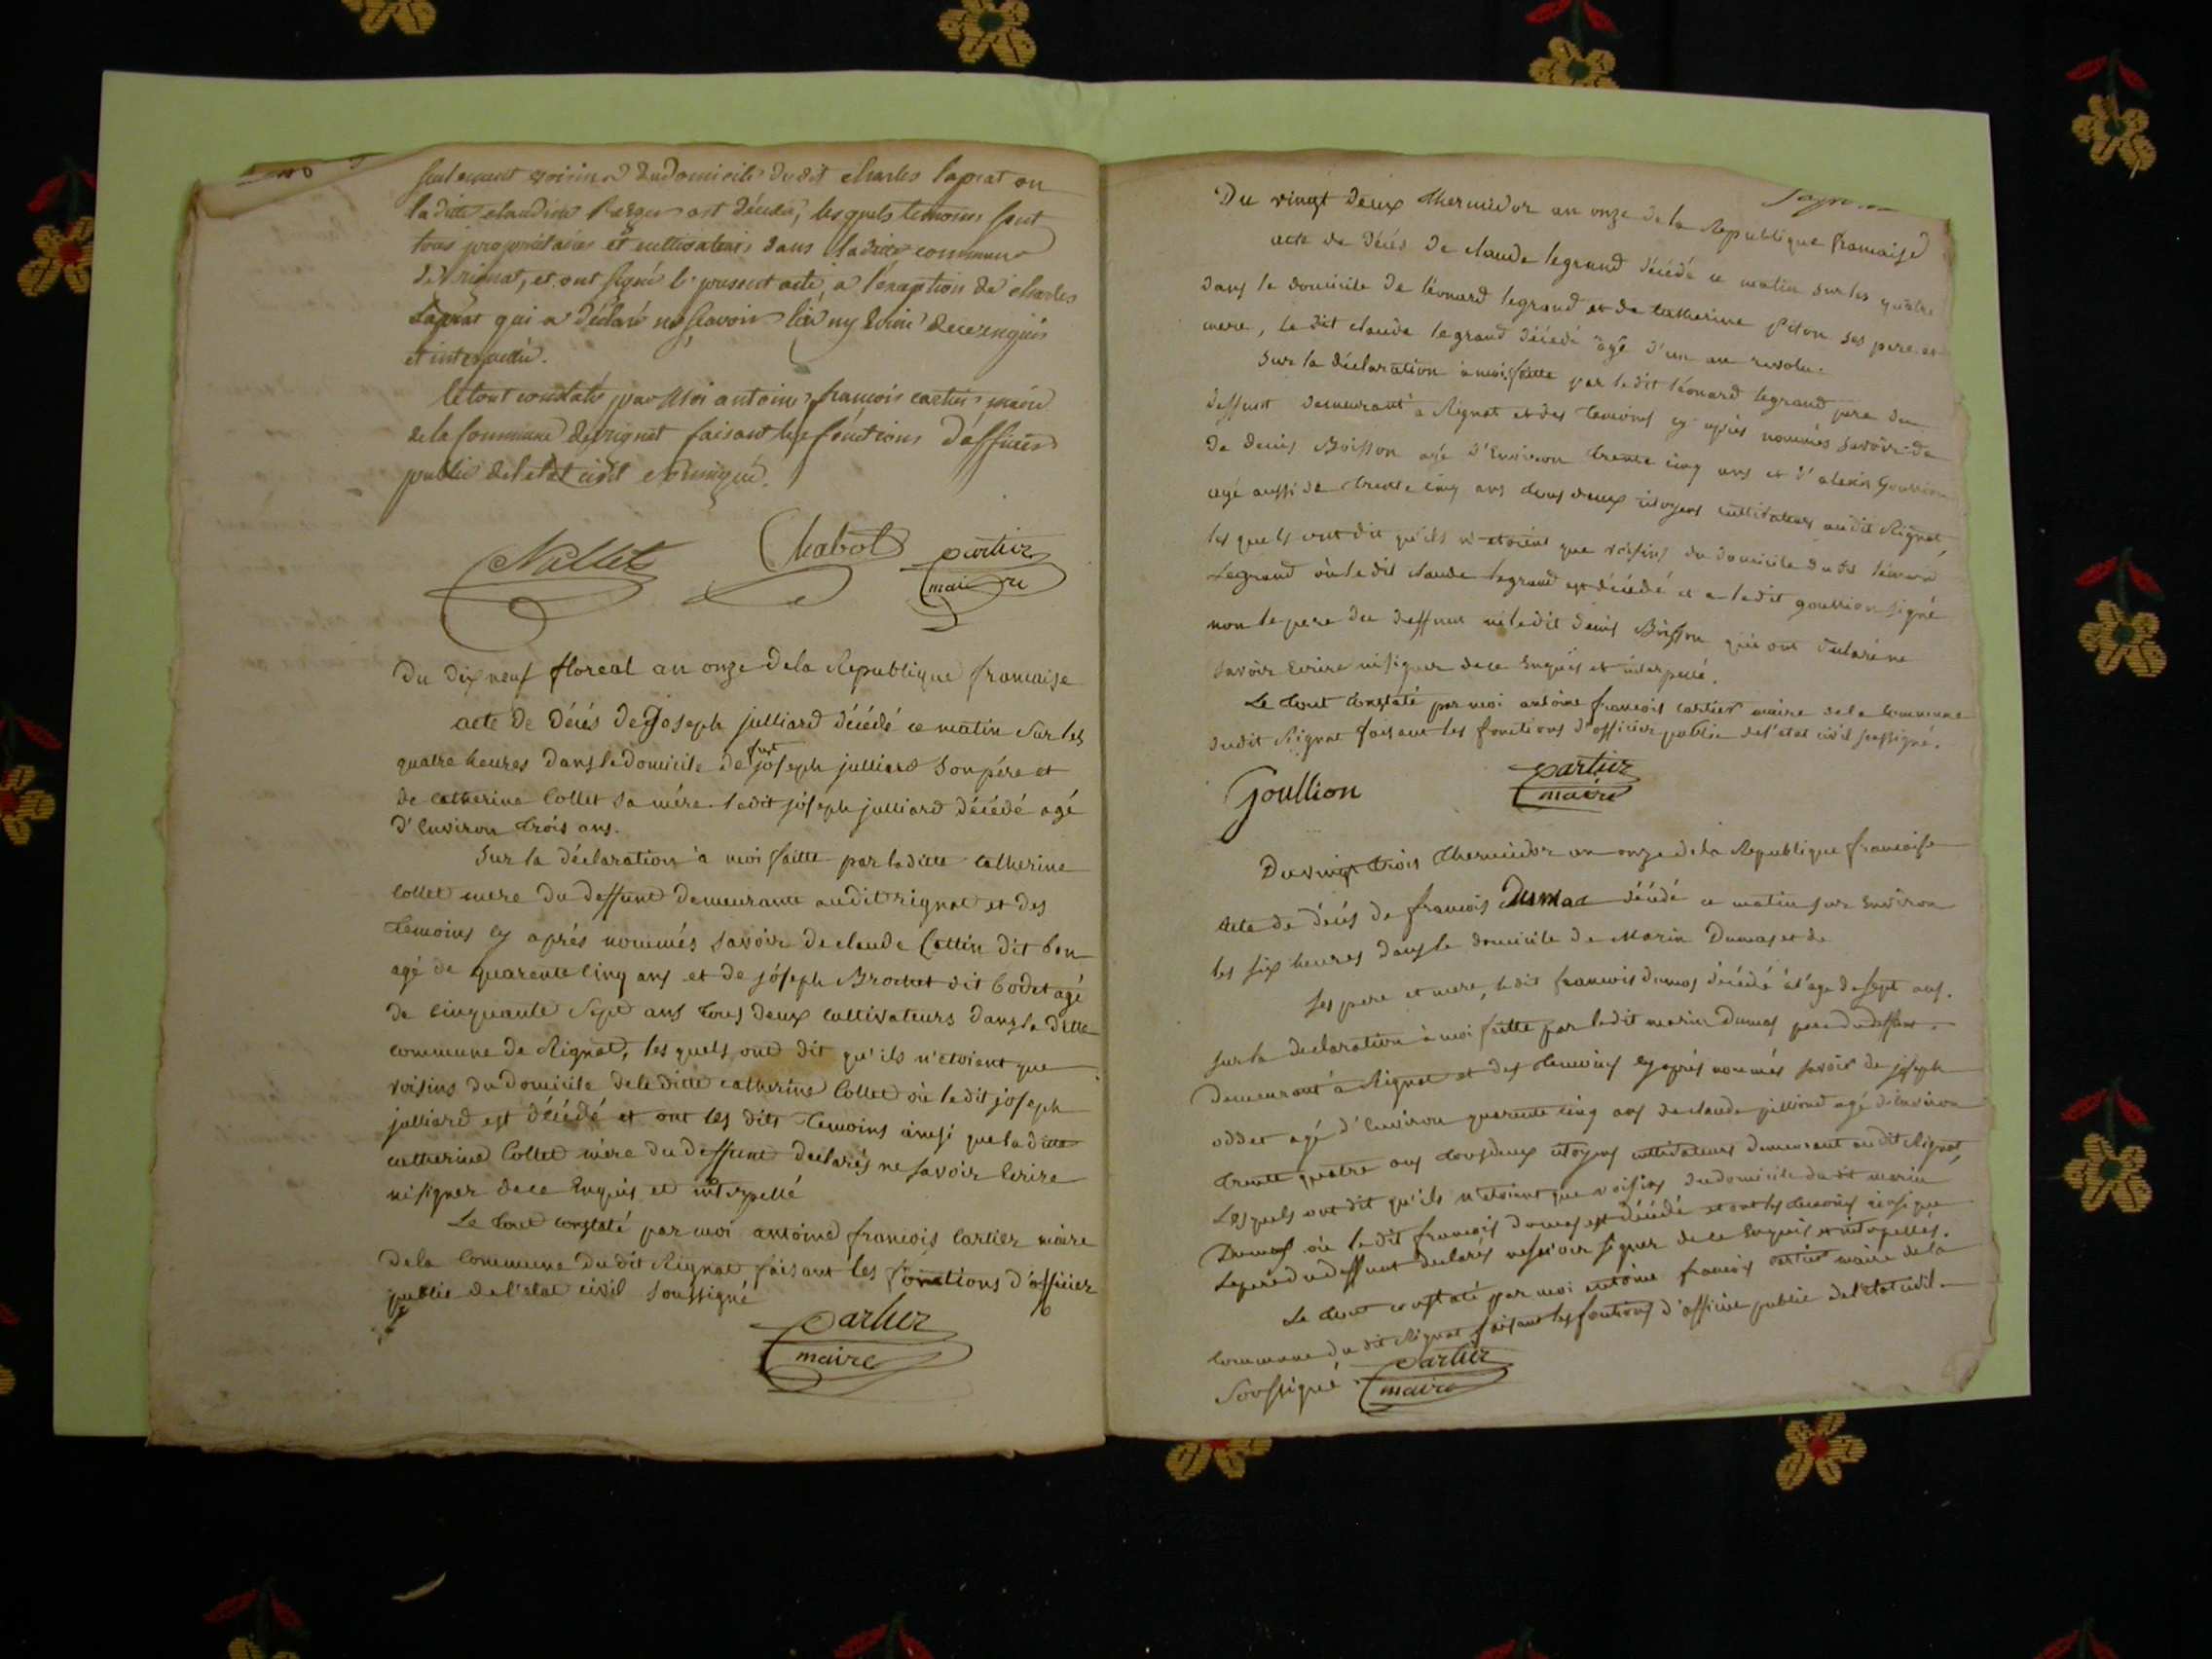 seulement voisins du domicile du dit charles laprat ou
la ditte claudine Berger est décédé, lesquels temoins sont
tous propriétaires et cultivateurs dans la ditte commune
de Rignat, et ont signé le present acte, a l'exception de charles
laprat qui a déclaré ne scavoir lire ny Ecrire de ce enquis
et interpellé.
le tout constaté par Moi antoine françois cartier maire
de la Commune de rignat faisant les fonctions d'officier
public de l'etat civil soussigné.
Nallet Chabot Cartier
maire
Du dix neuf floreal an onze de la Republique francaise
acte de décés de Joseph julliard décédé ce matin sur les
quatre heures dans le domicile de fut joseph julliard son pére et
de catherine Collet sa mére. ledit joseph julliard décédé agé
d'Environ trois ans.
Sur la déclaration à moi faitte par laditte catherine
Collet mere du deffunt demeurante audit rignat et des
temoins cy aprés nommés savoir de claude Cottin dit bon
agé de quarente cinq ans et de joseph Brochet dit bodet agé
de cinquante sept ans tous deux cultivateurs dans la ditte
commune de Rignat, les quels ont dit qu'ils n'etoient que
voisins du domicile de la ditte catherine Collet où ledit joseph
julliard est décédé et ont les dits temoins ainsi que la ditte
catherine Collet mére du deffunt declarés ne savoir Ecrire
ni signer de ce Enquis et interpellé
Le tout constaté par moi antoine francois Cartier maire
de la Commune du dit Rignat faisant les fonctions d'officier
public de l'etat civil soussigné
Cartier
maire
Du vingt deux thermidor an onze de la Republique francaise
acte de décés de claude legrand décédé ce matin sur les quatre
dans le domicile de léonard legrand et de catherine piton ses pere et
mere, le dit claude legrand décédé agé d'un an revolu.
Sur la déclaration à moi faitte par ledit léonard legrand pere du
deffunt demeurant à Rignat et des temoins cy aprés nommés savoir de
de denis Boisson agé d'Environ trente cinq ans et d'alexis Goullion
agé aussi de trente cinq ans tous deux citoyens cultivateurs audit Rignat,
les quels ont dit qu'ils n'etoient que voisins du domicile du dit léonard
Legrand où le dit claude legrand est décédé et a ledit goullion signé
non le pere du deffunt ni ledit denis Boisson qui ont déclaré ne
savoir Ecrire ni signer de ce Enquis et interpellé.
Le tout constaté par moi antoine francois cartier maire de la commune
dudit Rignat faisant les fonctions d'officier public de l'etat civil soussigné.
Goullion Cartier
maire
Du vingt trois thermidor an onze de la Republique francaise
Acte de décés de francois Dumas décédé ce matin sur Environ
les six heures dans le domicile de Marin Dumas et de
ses pere et mere, ledit francois dumas décédé à l'age de sept ans.
Sur la declaration à moi faitte par ledit marin Dumas pere du deffunt.
Demeurant à Rignat et des temoins cy aprés nommés savoir de joseph
oddet agé d'Environ quarente cinq ans de claude julliard agé d'Environ
trente quatre ans tous deux citoyens cultivateurs demeurant audit Rignat,
Lesquels ont dit qu'ils n'etoient que voisins du domicile du dit marin
Dumas où le dit francois dumas est décédé et ont les temoins ainsi que
Le pere du deffunt declarés ne savoir signer de ce Enquis et interpellés.
Le tout constaté par moi antoine francois cartier maire de la
Commune du dit Rignat faisant les fonctions d'officier public de l'etat civil.
Soussigné. Cartier
maire